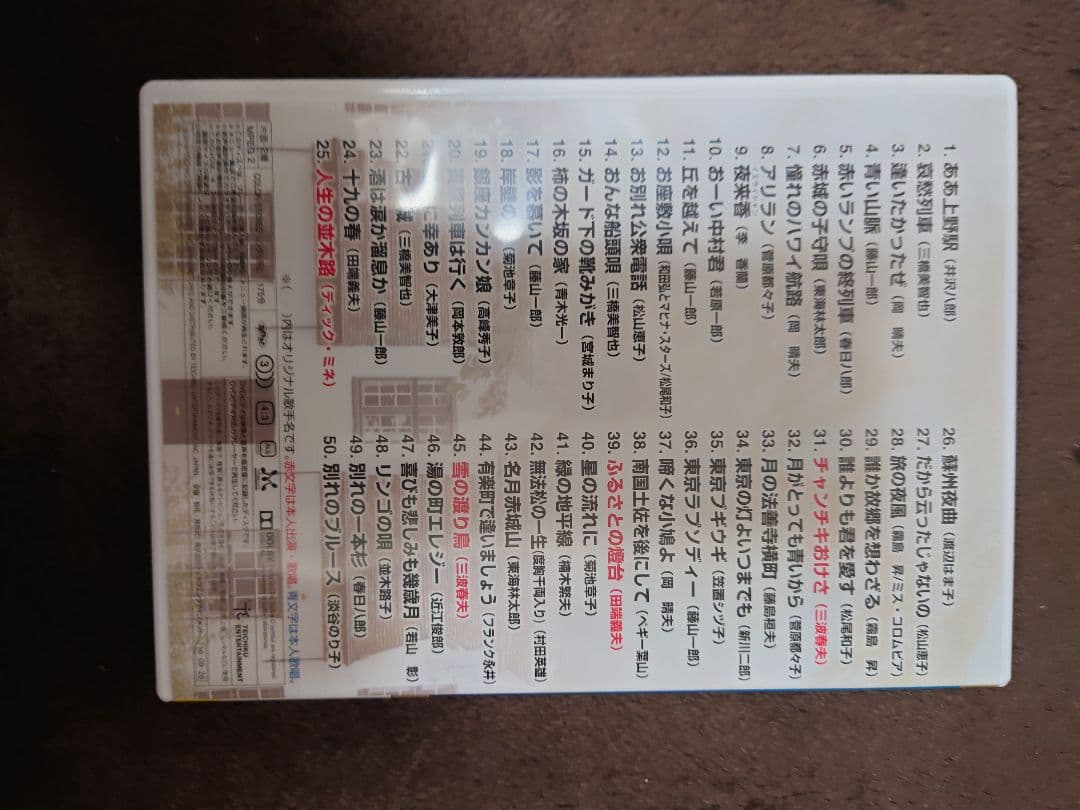 1. ああ上野駅 (井沢八郎)
2. 哀愁列車 (三橋美智也)
3. 逢いたかったぜ (岡 晴夫)
4. 青い山脈 (藤山一郎)
5. 赤いランプの終列車 (春日八郎)
6. 赤城の子守唄 (東海林太郎)
7. 憧れのハワイ航路 (岡 晴夫)
8. アリラン (菅原都々子)
9. 夜来香 (李 香蘭)
10. おーい中村君 (若原一郎)
11. 丘を越えて (藤山一郎)
12. お座敷小唄 (和田弘とマヒナ・スターズ/松尾和子)
13. お別れ公衆電話 (松山恵子)
14. おんな船頭唄 (三橋美智也)
15. ガード下の靴みがき (宮城まり子)
16. 柿の木坂の家 (青木光一)
17. 影を慕いて (藤山一郎)
18. 岸壁の (菊池章子)
19. 銀座カンカン娘 (高峰秀子)
20. 列車は行く (岡本敦郎)
に幸あり (大津美子)
22. 古城 (三橋美智也)
23. 酒は涙か溜息か (藤山一郎)
24. 十九の春 (田端義夫)
25. 人生の並木路 (ディック・ミネ)
26. 蘇州夜曲 (渡辺はま子)
27. だから云ったじゃないの (松山恵子)
28. 旅の夜風 (霧島 昇/ミス・コロムビア)
29. 誰か故郷を想わざる (霧島 昇)
30. 誰よりも君を愛す (松尾和子)
31. チャンチキおけさ (三波春夫)
32. 月がとっても青いから (菅原都々子)
33. 月の法善寺横町 (藤島桓夫)
34. 東京の灯よいつまでも (新川二郎)
35. 東京ブギウギ (笠置シヅ子)
36. 東京ラプソディー (藤山一郎)
37. 啼くな小鳩よ (岡 晴夫)
38. 南国土佐を後にして (ペギー葉山)
39. ふるさとの燈台 (田端義夫)
40. 星の流れに (菊池章子)
41. 緑の地平線 (楠木繁夫)
42. 無法松の一生(度胸千両入り) (村田英雄)
43. 名月赤城山 (東海林太郎)
44. 有楽町で逢いましょう (フランク永井)
45. 雪の渡り鳥 (三波春夫)
46. 湯の町エレジー (近江俊郎)
47. 喜びも悲しみも幾歳月 (若山 彰)
48. リンゴの唄 (並木路子)
49. 別れの一本杉 (春日八郎)
50. 別れのブルース (淡谷のり子)
※( )内はオリジナル歌手名です。赤文字は本人出演・歌唱。青文字は本人歌唱。
MPEG 2
COLOR
175分
3
4:3
TEICHIKU
ENTERTAINMENT